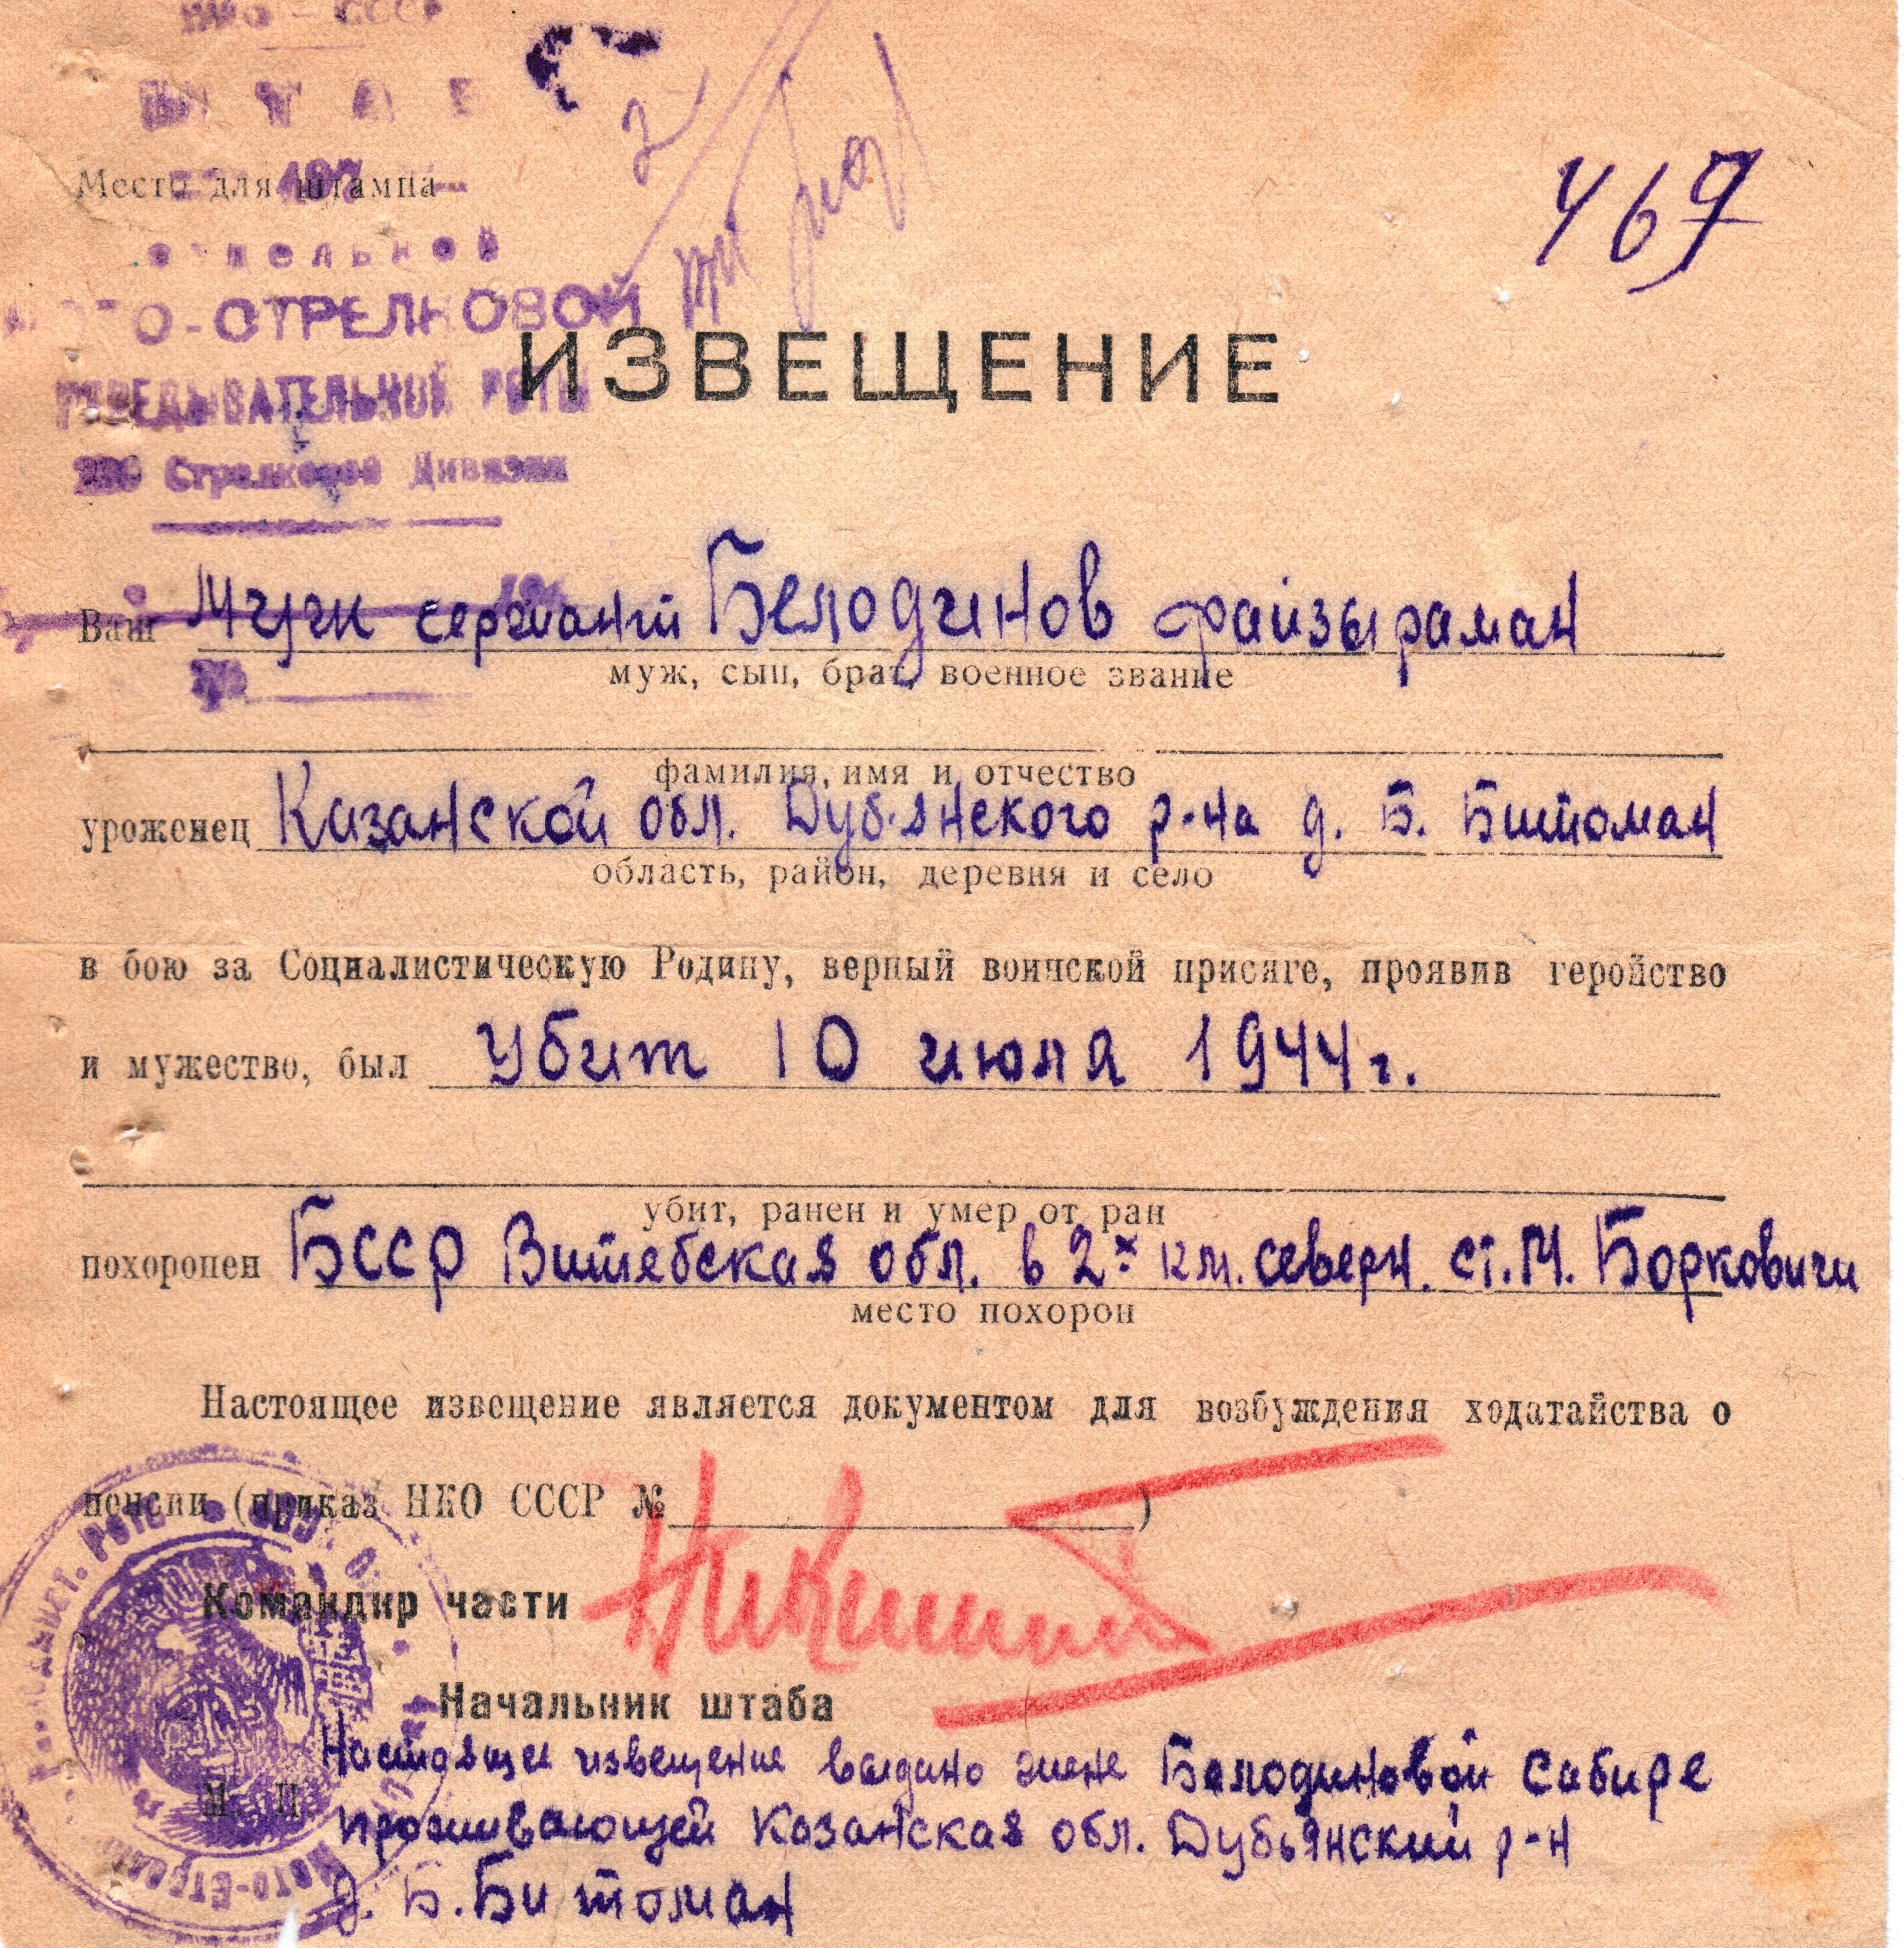 НКО – СССР
ШТАБ
Место для штампа
отдельной
МОТО-СТРЕЛКОВОЙ
РАЗВЕДЫВАТЕЛЬНОЙ РОТЫ
Стрелковой Дивизии
№
467
ИЗВЕЩЕНИЕ
Ваш Муж сержант Белодинов Файзыраман
муж, сын, брат, военное звание
фамилия, имя и отчество
уроженец Казанской обл. Дубъянского р-на д. Б. Битоман
область, район, деревня и село
в бою за Социалистическую Родину, верный воинской присяге, проявив геройство
и мужество, был Убит 10 июля 1944 г.
убит, ранен и умер от ран
похоронен БССР Витебская обл. в 2х км. северн. ст. М. Борковичи
место похорон
Настоящее извещение является документом для возбуждения ходатайства о
пенсии (приказ НКО СССР № )
Командир части
Начальник штаба
М. П.
Настоящее извещение выдано жене Белодиновой Сабире
проживающей Казанская обл. Дубьянский р-н
д. Б. Битоман